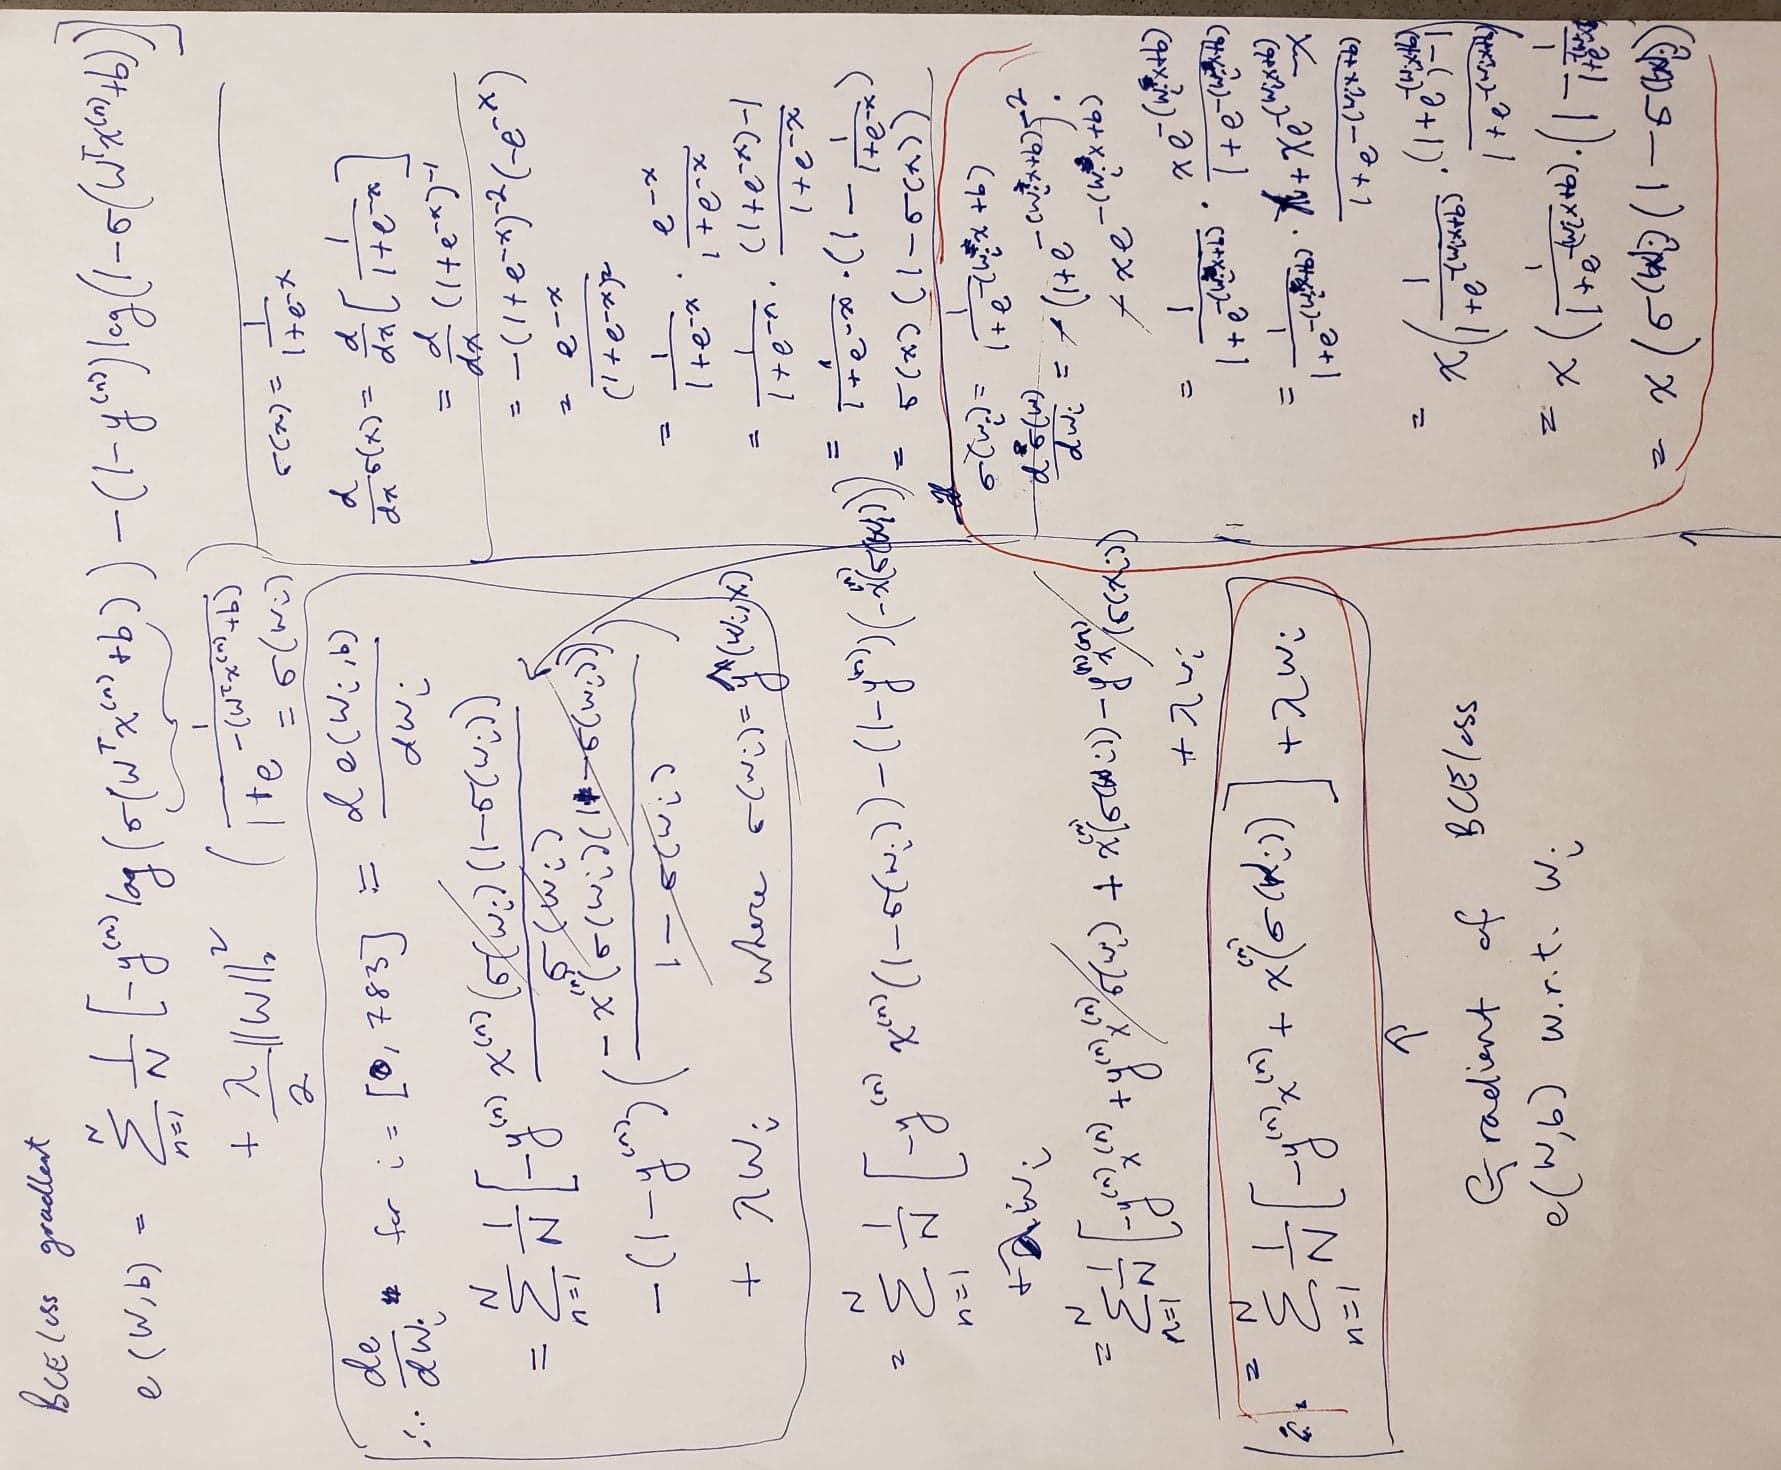 BCE loss gradient
e(W,b) = Σ_{n=1}^{N} 1/N [-y^(n) log(σ(W^T x^(n)+b)) - (1-y^(n)) log(1-σ(W^T x^(n)+b))]
+ λ/2 ||W||_2^2 (1/(1+e^-(W^T x^(n)+b)) = σ(w_i))
∴ de/dw_i for i = [0, 783] := de(w_i,b)/dw_i
= Σ_{n=1}^{N} 1/N [-y^(n) x^(n)(σ(w_i))(1-σ(w_i))/σ(w_i)
-(1-y^(n))(-x^(n)(σ(w_i))(1-σ(w_i))/(1-σ(w_i)))
+ λw_i where σ(w_i) = (w_i, x_i)
= Σ_{n=1}^{N} 1/N [-y^(n) x^(n)(1-σ(w_i)) - (1-y^(n))(-x^(n)(σ(w_i)))
+ λw_i
= Σ_{n=1}^{N} 1/N [-y^(n)x^(n) + y^(n)x^(n)σ(w_i) + x^(n)(σ(w_i)) - y^(n)x^(n)(σ(x_i))
+ λw_i
= Σ_{n=1}^{N} 1/N [-y^(n)x^(n) + x^(n)(σ(x_i))] + λw_i
Gradient of BCE loss
e(W,b) w.r.t. w_i
σ(x) = 1/(1+e^-x)
d/dx σ(x) = d/dx [1/(1+e^-x)]
= d/dx (1+e^-x)^-1
= -(1+e^-x)^-2(-e^-x)
= e^-x/(1+e^-x)^2
= 1/(1+e^-x) · e^-x/(1+e^-x)
= 1/(1+e^-x) · (1+e^-x)-1/(1+e^-x)
= 1/(1+e^-x) · (1 - 1/(1+e^-x))
= σ(x)(1-σ(x))
σ(w_i) = 1/(1+e^-(w_i x+b))
dσ(w)/dw_i = -(1+e^-(w_i x+b))^-2 ·
-xe^-(w_i x+b)
= 1/(1+e^-(w_i x+b)) · xe^-(w_i x+b)/(1+e^-(w_i x+b))
= 1/(1+e^-(w_i x+b)) · x+xe^-(w_i x+b)-x/(1+e^-(w_i x+b))
= x(1/(1+e^-(w_i x+b)) · (1+e^-(w_i x+b))-1/(1+e^-(w_i x+b)))
= x(1/(1+e^-(w_i x+b)) · (1 - 1/(1+e^-(w_i x+b))
= x(σ(w_i)(1-σ(w_i)))